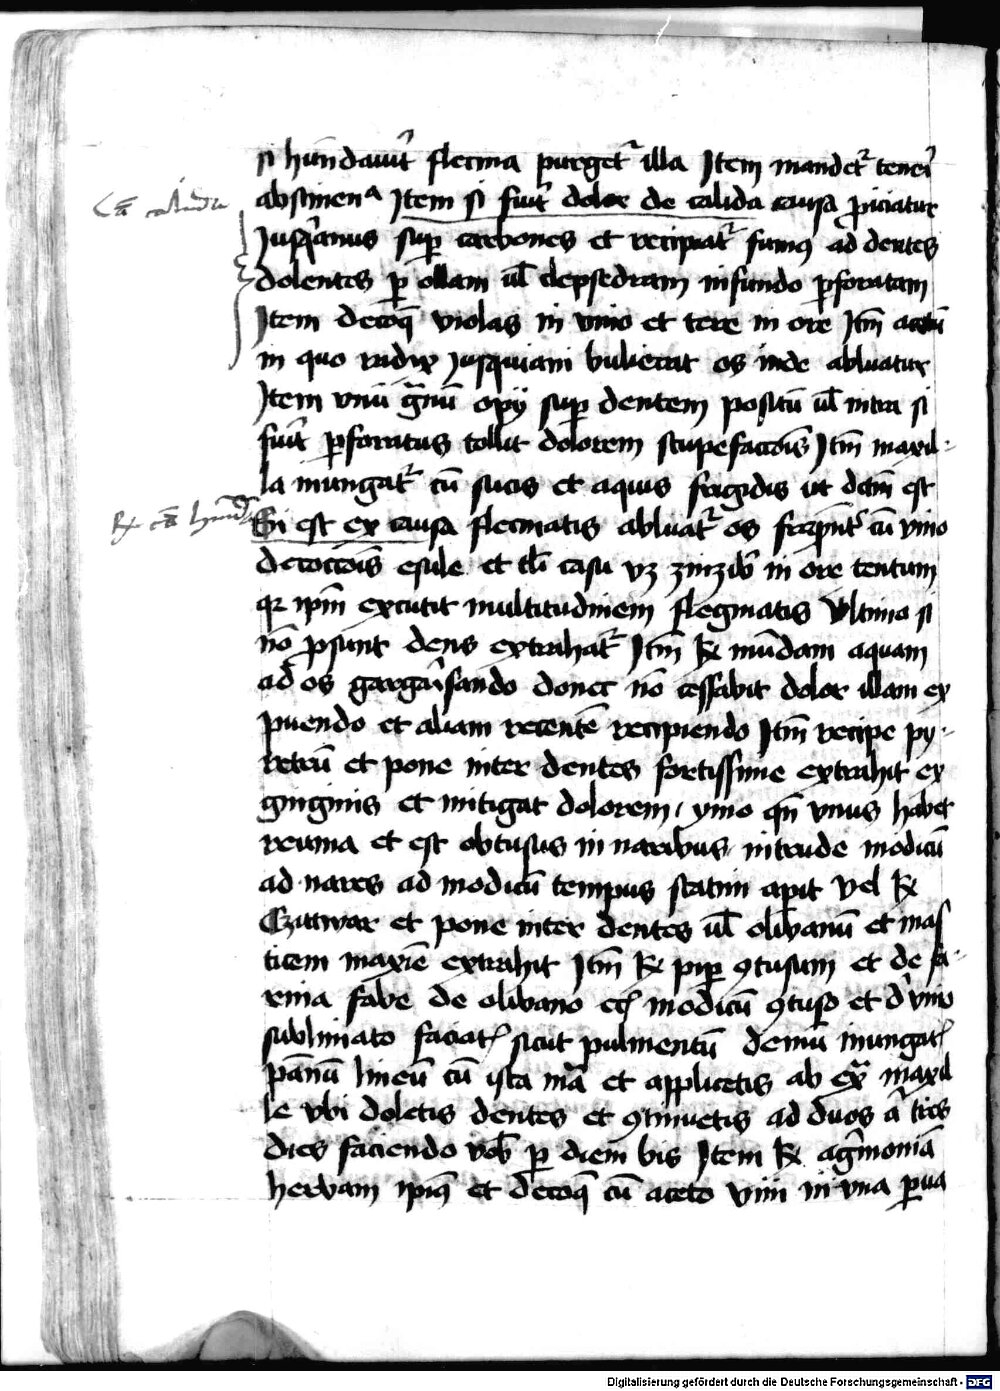 si hundauit flecma purget᷑ illa Item mandet᷑ teneri
abstinenᵃ Item si fuit dolor de calida causa ꝓiciatur
Cā calida
Jusqͥamus suꝑ carbones et recipiat᷑ fumꝰ ad dentes
dolentes ꝑ ollam ul̄ clepsedram in fundo ꝑforatam
Item decoqͣ violas in vino et tere in ore Itm̄ acetū
in quo radix Jusquiami bulierat os inde abluatur
Item vnū gͣnū opij suꝑ dentem positū ul̄ intra si
fuit ꝑforatus tollit dolorem stupefaccōis Itm̄ maxil-
la inungat᷑ cū sucis et aquis frigidis ut dcm̄ est
Rx cā humida
Si est ex causa flecmatis abluat᷑ os cū vino
decoccōis esule et tli casu vz zinzibͥ in ore tentum
qꝛ ipm̄ excutit multitudinem flegmatis Vltimo si
nō ꝓsunt dens extrahat᷑ Itm̄ Rx mūdam aquam
ad os gargarisando donec nō cessabit dolor illam ex
puendo et aliam recentē recipiendo Itm̄ recipe py-
retrū et pone inter dentes fortissime extrahit ex
gingiuis et mitigat dolorem ymo qn̄ vnus habet
reuma et est obtusus in naribus intrude modicū
ad nares ad modicū tempus statim aꝑit Vel Rx
Czitwar et pone inter dentes ul̄ olibanū et mas
ticem maxīe extrahit Itm̄ Rx piꝑ ꝯtusum et de fa-
rina fabe de olibano modicū ꝯtuso et dͤ vino
sublimato faciatꝭ sicut pulmentū demū inungatꝭ
pannū lineū cū ista mͣ et applicetis ab exͣ maxil
le vbi doletis dentes et ꝯtinuetis ad duos aͣ tres
dies faciendo vob ꝑ diem bis Item Rx agͥmoniā
herbam ipiꝰ et decoqͣ cū aceto vini in vna ꝑua
Digitalisierung gefördert durch die Deutsche Forschungsgemeinschaft - DFG